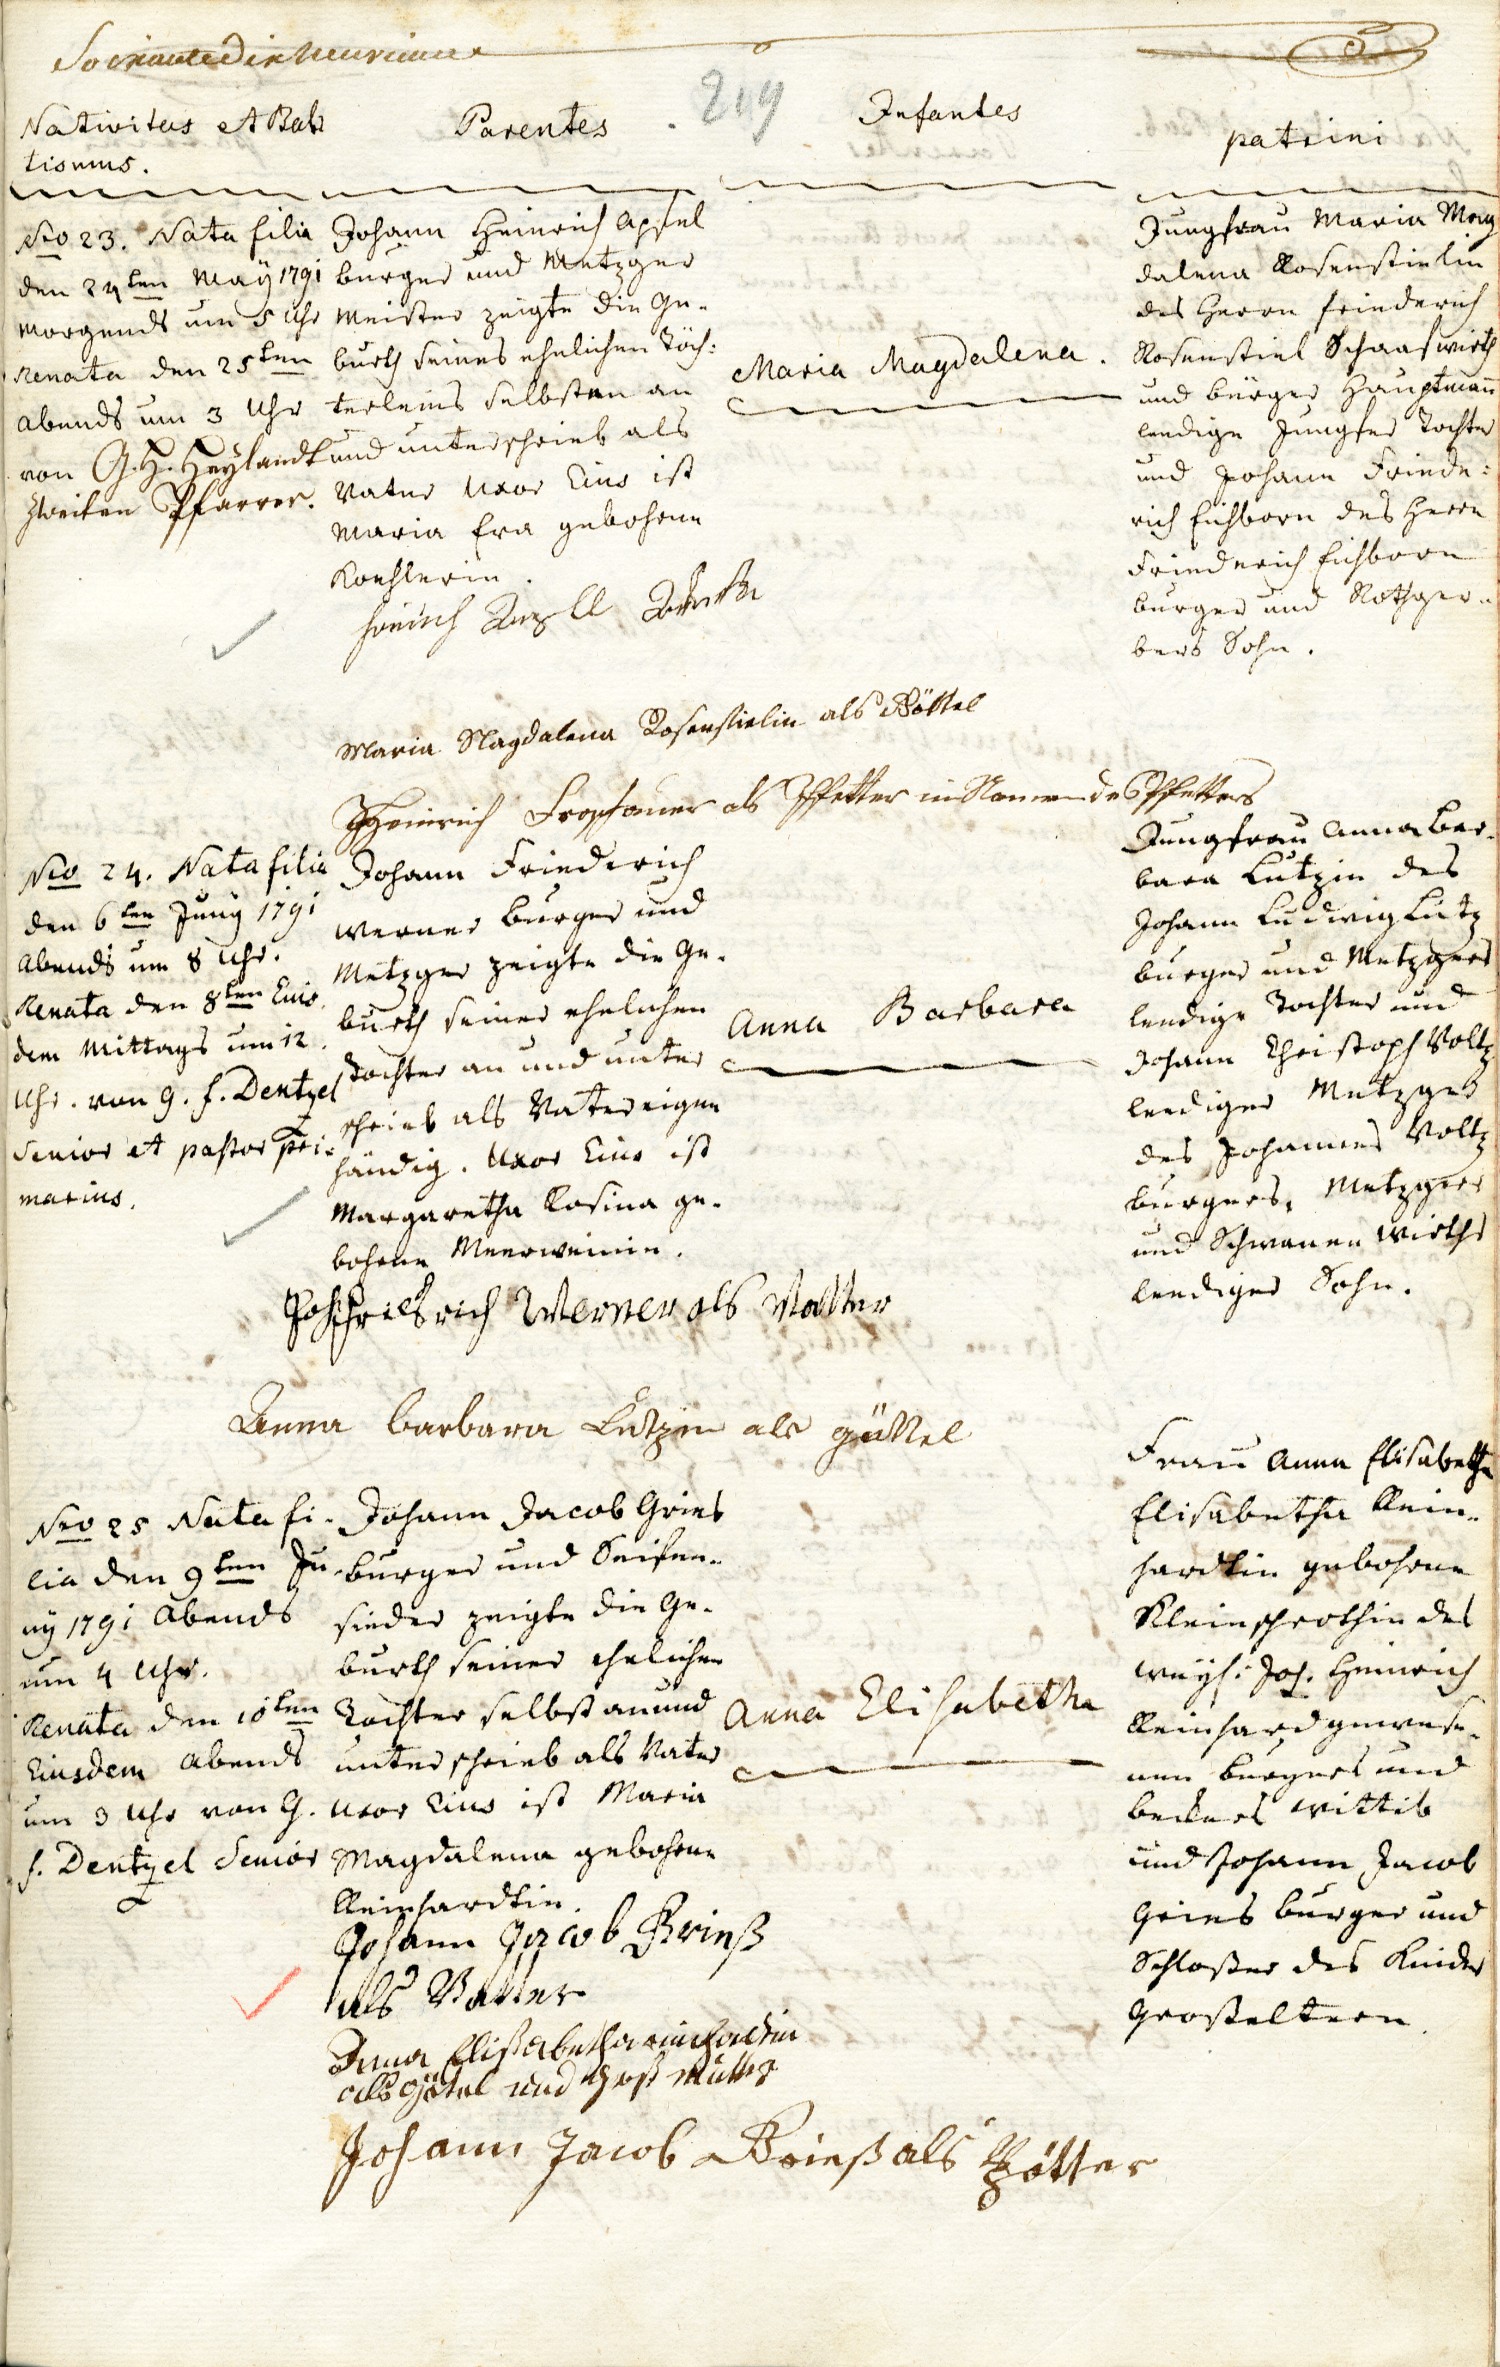 219
Nativitas et Bab
tismus.
Parentes
Infantes
patrini
Nro 23. Nata filia
den 24ten Maÿ 1791
Morgends um 5 Uhr
Renata den 25ten
Abends um 3 Uhr
von G. H. Heylandt
Zweiten Pfarrer.
Johann Heinrich Apfel
burger und Metzger
Meister zeigte die Ge-
burth seines ehelichen Töch:
terleins selbsten an
und unterschrieb als
Vater Uxor Eius ist
Maria Eva gebohrne
Koehlerin.
Maria Magdalena.
Jungfrau Maria Mag
dalena Rosenstielin
des Herrn Friederich
Rosenstiel Schaafwirth
und bürger Hauptmann
leedige Jungfer Tochter
und Johann Friede:
rich Eichborn des Herrn
Friederich Eichborn
burger und Rothger-
bers Sohn.
Maria Magdalena Rosenstielin als Göttel
Heinrich als Pfetter im Namen des Pfetters
Nro 24. Nata filia
den 6ten Juny 1791
Abends um 8 Uhr.
Renata den 8ten Eius
dem Mittags um 12
Uhr. von G. F. Dentzel
Senior et pastor pri:
marius.
Johann Friederich
Werner burger und
Metzger zeigte die Ge-
burth seiner ehelichen
Tochter an und unter
schrieb als Vater eigen
händig. Uxor Eius ist
Margaretha Rosina ge-
bohrne Meerweinin.
Werner als Vatter
Anna Barbara
Jungfrau Anna Bar-
bara Lutzin des
Johann Ludwig Lutz
burger und Metzgers
leedige Tochter und
Johann Christoph Voltz
leediger Metzger
des Johannes Voltz
burgers, Metzgers
und Schwanen Wirths
leediger Sohn.
Anna barbara Lutzin als göttel
Nro 25 Nata fi-
lia den 9ten Ju
ny 1791 Abends
um 4 Uhr.
Renata den 10ten
Eiusdem Abends
um 3 Uhr von G.
F. Dentzel Senior
Johann Jacob Gries
burger und Seifen-
sieder zeigte die Ge-
burth seiner ehelichen
Tochter selbst an und
unterschrieb als Vater
Uxor Eius ist Maria
Magdalena gebohrne
Reinhardtin.
Johann Jacob Grieß
als Vatter
Anna Elisabetha
als götel und Groß Mutter
Johann Jacob Grieß als Pfötter
Anna Elisabetha
Frau Anna Elisabetha
Elisabetha Rein-
hardtin gebohrne
Kleinschrothin des
weyl: Joh. Heinrich
Reinhard gewese-
nen burgers und
beckers Wittib
und Johann Jacob
Gries burger und
Schloßer des Kindes
Großeltern.